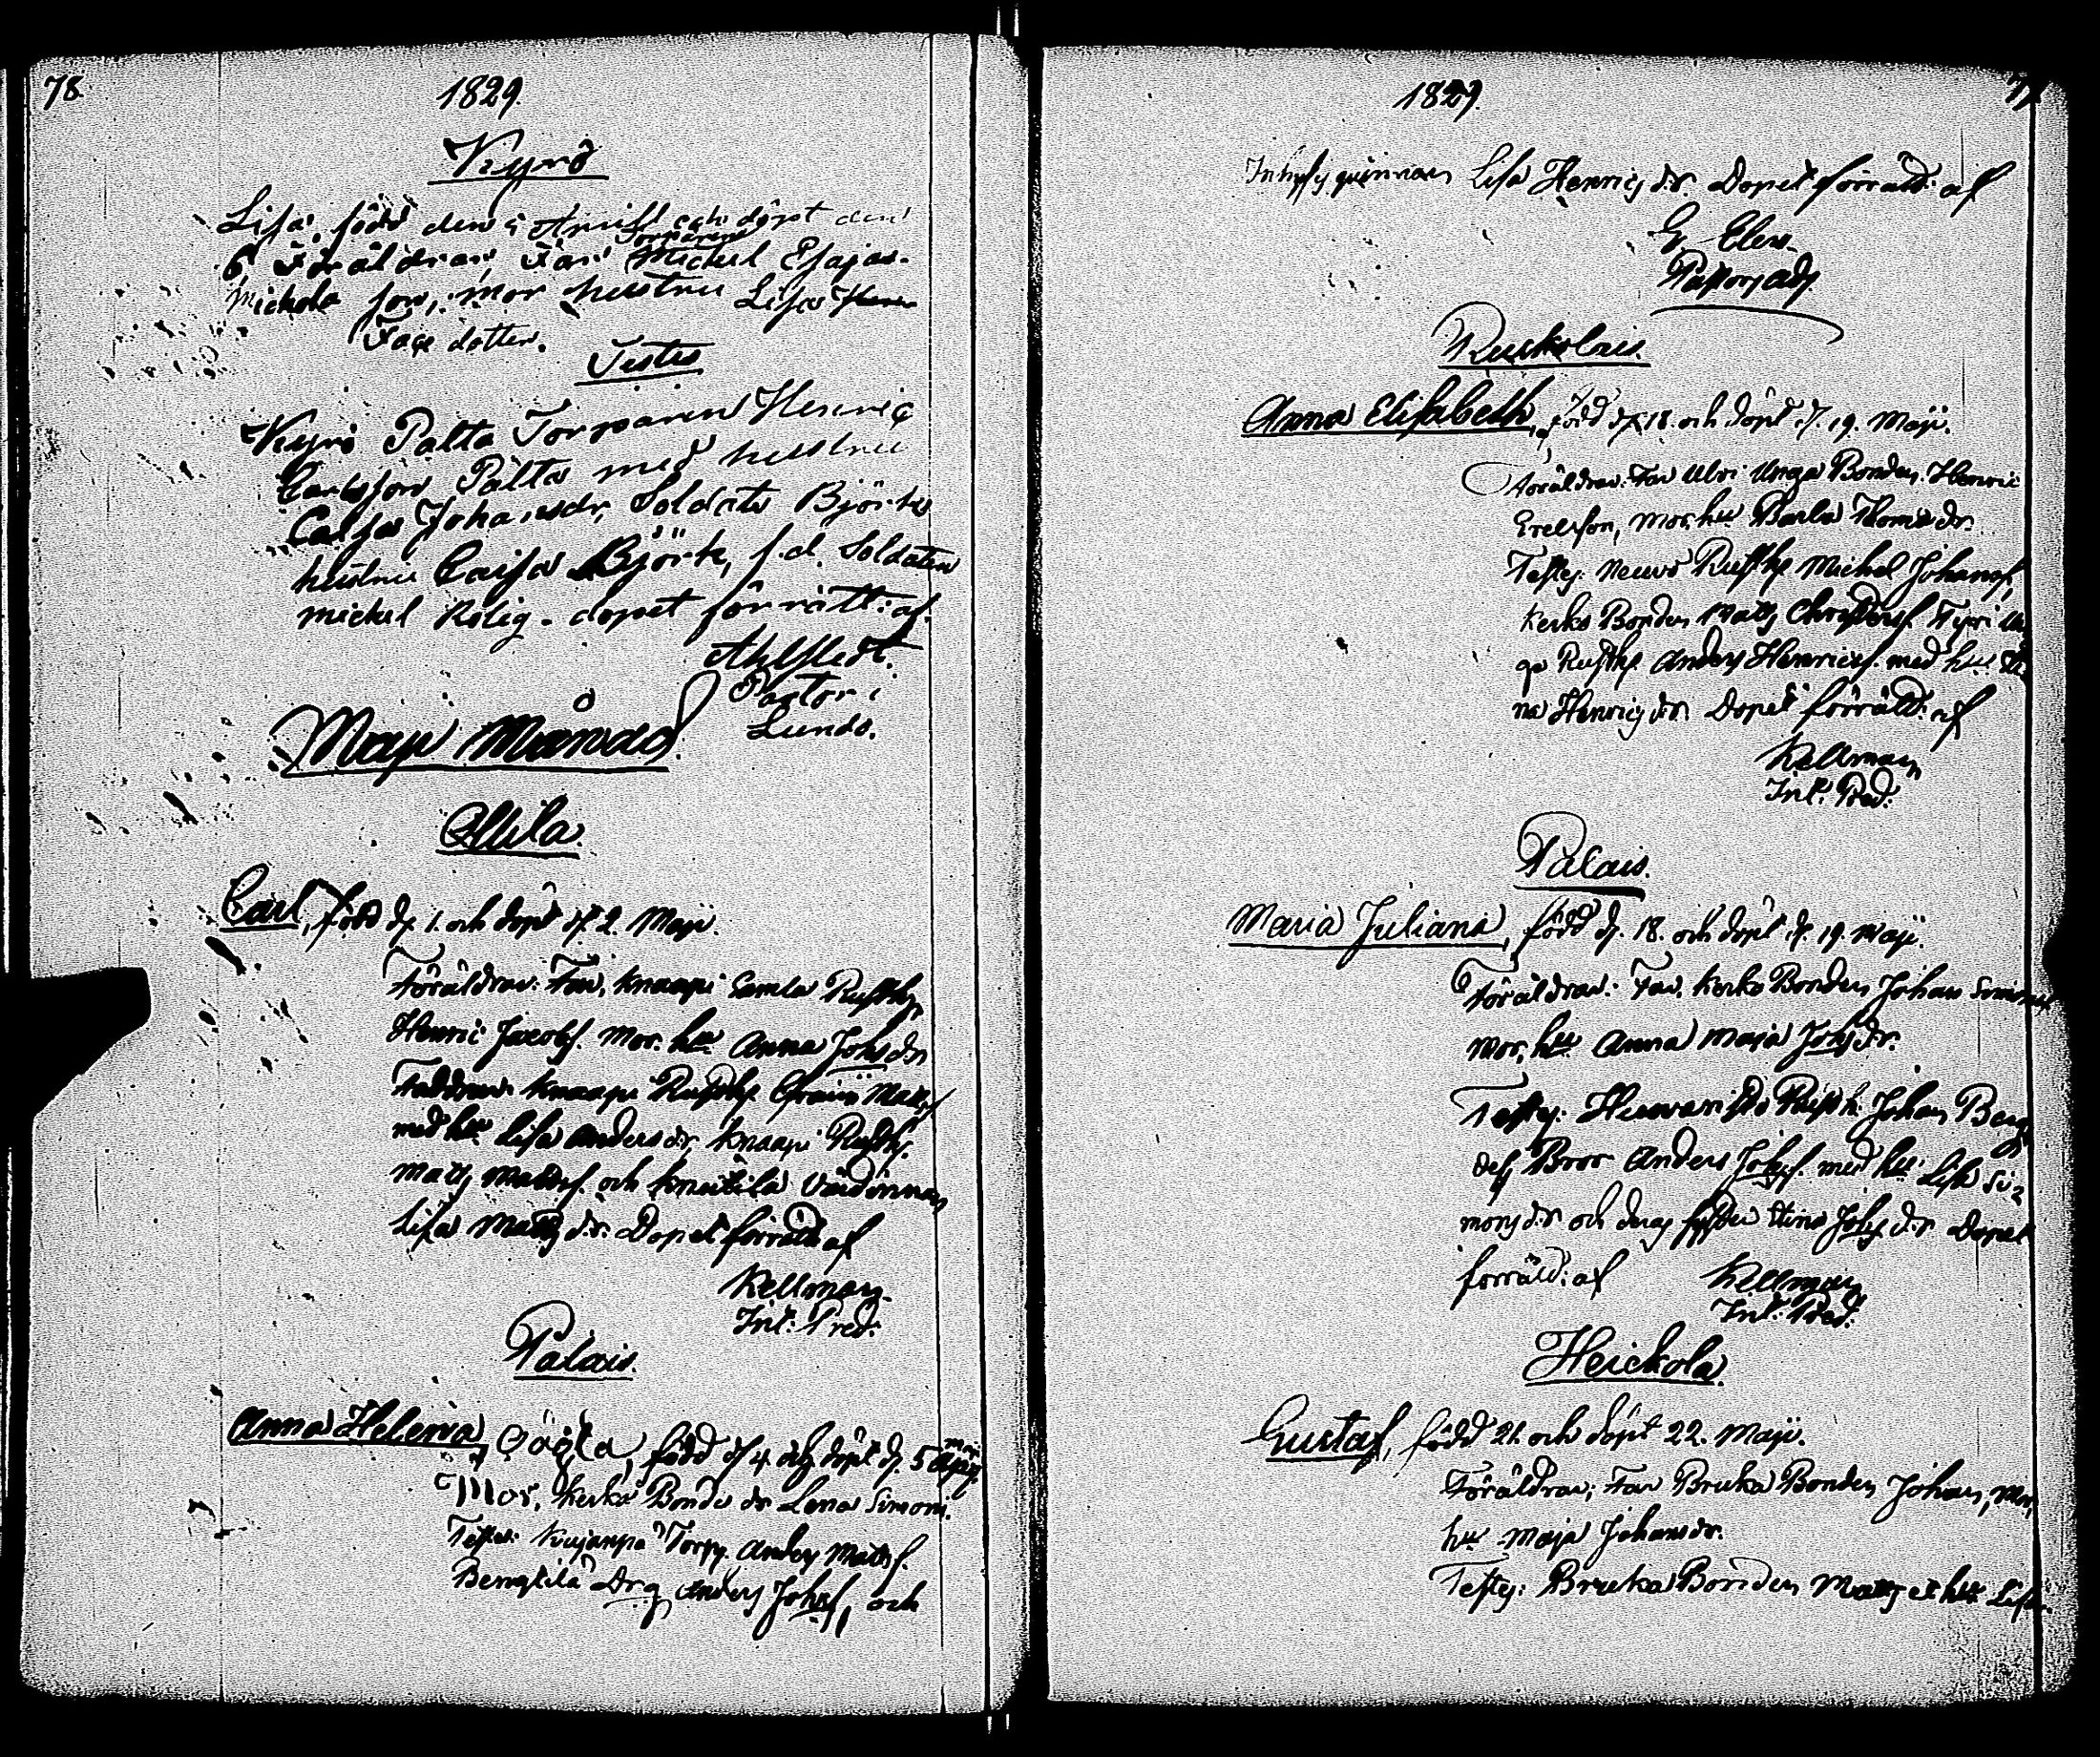 78.
1829.
Kyrö
Lisa, född den 5 April och döpt den
6 Föräldrar, Far Torparen Michel Esajas-
Michels son, mor hustru Lisa
dotter.
Testes
Kyrö Palta Torparen Henric
Carlsson Palta med hustru
Caisa Johansdr, Soldats Björks
hustru Caisa Björk, f.d. Soldaten
Michel Rolig. dopet förrätt: af.
Ahlstedt.
Pastor i
Lundo.
Maji Månad.
Ollila.
Carl, född d. 1. och döpt d. 2. Maji.
Föräldrar: Far, Knaapi Gamla Rusth.
Henric Jacobs. Mor. hu. Anna Johsdr
Faddrar: Knaapi Rusth. Matts
med hu Lisa Andersdr, Knaapi Rusth.
Matts Mattss. och Knuitila Värdinnan
Lisa Mattsdr. Dopet förrättt af
Kellman.
Int: Pred:
Palais.
Anna Helena, Oägta, född d. 4. och döpt d. 5 Maji
Mor, Kerko Bonde dr Lena Simons.
Testes: Kujanpä Torp. Anders Matss.
Bengtilä Drg Anders Johss, och
1829.
Inhyses quinnan Lisa Henricsdr. Dopet förrättd: af
G. Elers.
Pastors adj.
Ruskolais.
Anna Elisabeth, född d. 18. och döpt d. 19. Maji.
Föräldrar: Far Ulvi Bonden Henric
Ericsson, Mor, hu Barbro Thomasdr.
Testes: Neuvo Rusth. Michel Johanss,
Kerko Bonden Matts Christerss.
Rusth. Anders Henricss. med hu Sti
na Henricsdr. Dopet förrättd: af
Kellman
Int. Pred:
Palais.
Maria Juliana, född d. 18. och döpt d. 19. Maji.
Föräldrar: Far. Kerko Bonden Johan Simonss
Mor, hu Anna Maja Johsdr.
Testes: Rusth. Johan Berg
des Bror Anders Johss. med hu Lisa Si=
monsdr och deras syster Stina Johsdr. Dopet
förrättd: af Kellman
Int: Pred:
Heickola.
Gustaf, född 21. och döpt 22. Maji.
Föräldrar; Far Bruka Bonden Johan, Mor,
hu Maja Johansdr.
Testes: Bruka Bonden Matts et hu Lisa